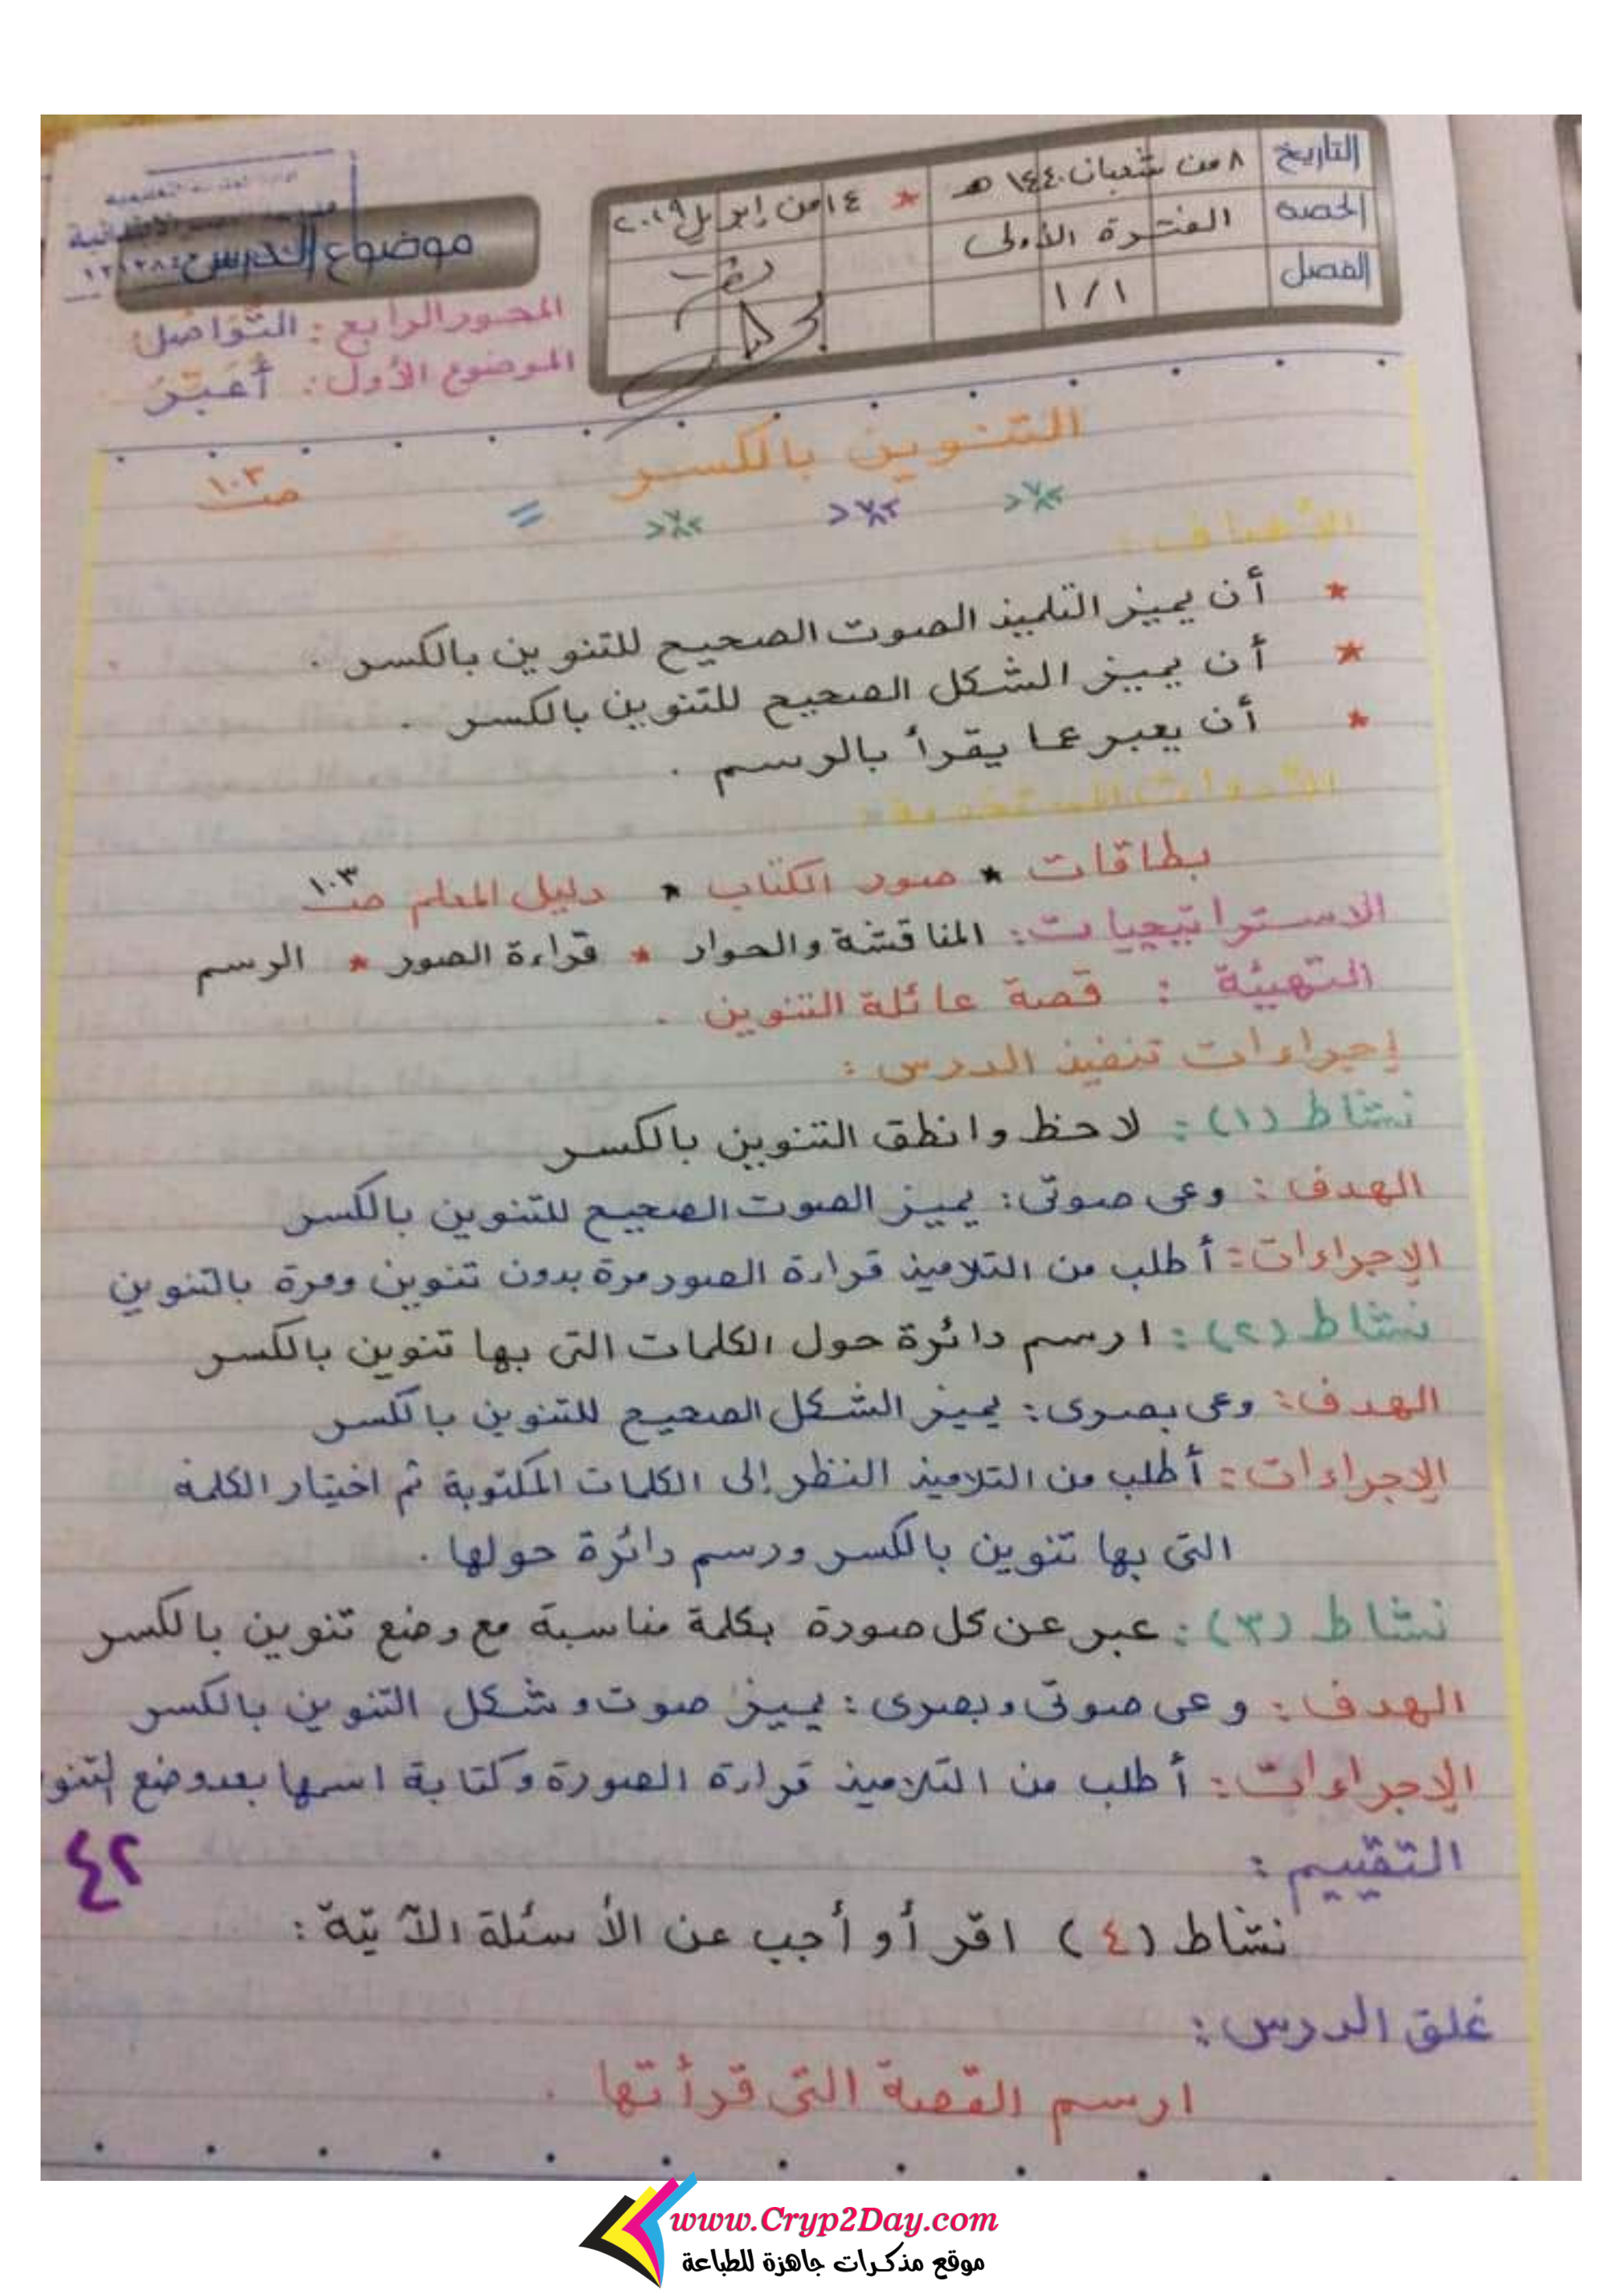 التاريخ ٨ من شعبان ١٤٤٠ هـ * ١٤ من إبريل ٢٠١٩
الحصة الفترة الأولى
الفصل ١/١
موضوع الدرس
المحور الرابع : التَّوَاصُل
الموضوع الأول : أُعَبِّرُ
التنوين بالكسر
صـ ١٠٣
الأهداف :
* أن يميز التلميذ الصوت الصحيح للتنوين بالكسر .
* أن يميز الشكل الصحيح للتنوين بالكسر .
* أن يعبر عما يقرأ بالرسم .
الأدوات المستخدمة :
بطاقات * صور الكتاب * دليل المعلم صـ ١٠٣
الاستراتيجيات : المناقشة والحوار * قراءة الصور * الرسم
التهيئة : قصة عائلة التنوين .
إجراءات تنفيذ الدرس :
نشاط (١) : لاحظ وانطق التنوين بالكسر
الهدف : وعى صوتى : يميز الصوت الصحيح للتنوين بالكسر
الإجراءات : أطلب من التلاميذ قراءة الصور مرة بدون تنوين ومرة بالتنوين
نشاط (٢) : ارسم دائرة حول الكلمات التى بها تنوين بالكسر
الهدف : وعى بصرى : يميز الشكل الصحيح للتنوين بالكسر
الإجراءات : أطلب من التلاميذ النظر إلى الكلمات المكتوبة ثم اختيار الكلمة
التى بها تنوين بالكسر ورسم دائرة حولها .
نشاط (٣) : عبر عن كل صورة بكلمة مناسبة مع وضع تنوين بالكسر
الهدف : وعى صوتى وبصرى : يميز صوت وشكل التنوين بالكسر
الإجراءات : أطلب من التلاميذ قراءة الصورة وكتابة اسمها بعد وضع التنو
التقييم :
٤٢
نشاط (٤) اقرأ و أجب عن الأسئلة الآتية :
غلق الدرس :
ارسم القصة التى قرأتها .
www.Cryp2Day.com
موقع مذكرات جاهزة للطباعة